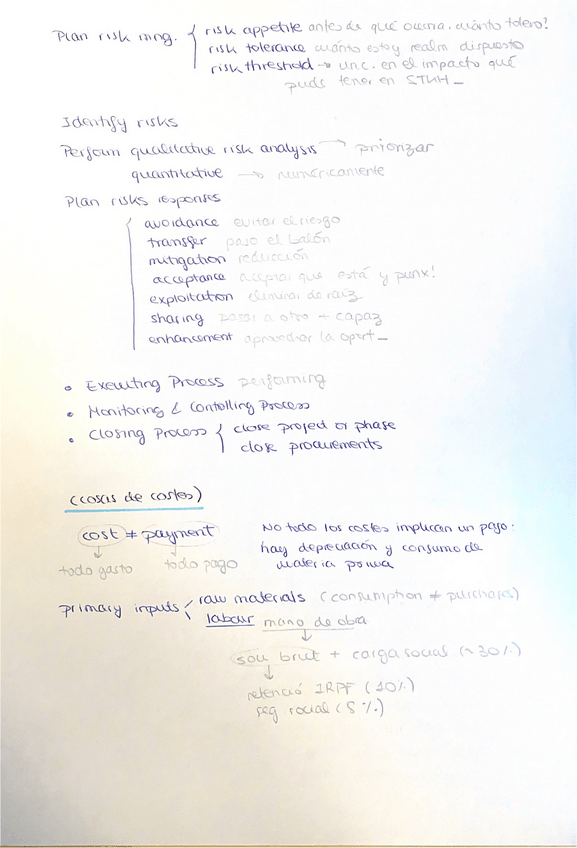 Plan risk mng. { risk appetite antes de que ocurra. cuánto tolero?
risk tolerance cuánto estoy realm dispuesto
risk threshold → unc. en el impacto que
puds tener en STKH_
Identify risks
Perform qualitative risk analysis → priorizar
quantitative → numéricamente
Plan risks responses
avoidance evitar el riesgo
transfer paso el balón
mitigation reducción
acceptance aceptar que está y punx!
exploitation eliminar de raíz
sharing pasar a otro + capaz
enhancement aprovechar la oport_
• Executing Process performing
• Monitoring & Contolling Process
• Closing Process { close project or phase
close procurements
(cosas de costes)
cost ≠ payment
No todo los costes implican un pago:
hay depreciación y consumo de
materia prima
todo gasto todo pago
primary inputs raw materials (consumption ≠ purchases)
labour mano de obra
sou brut + carga social (~30%)
retenció IRPF (10%)
seg social (8%)